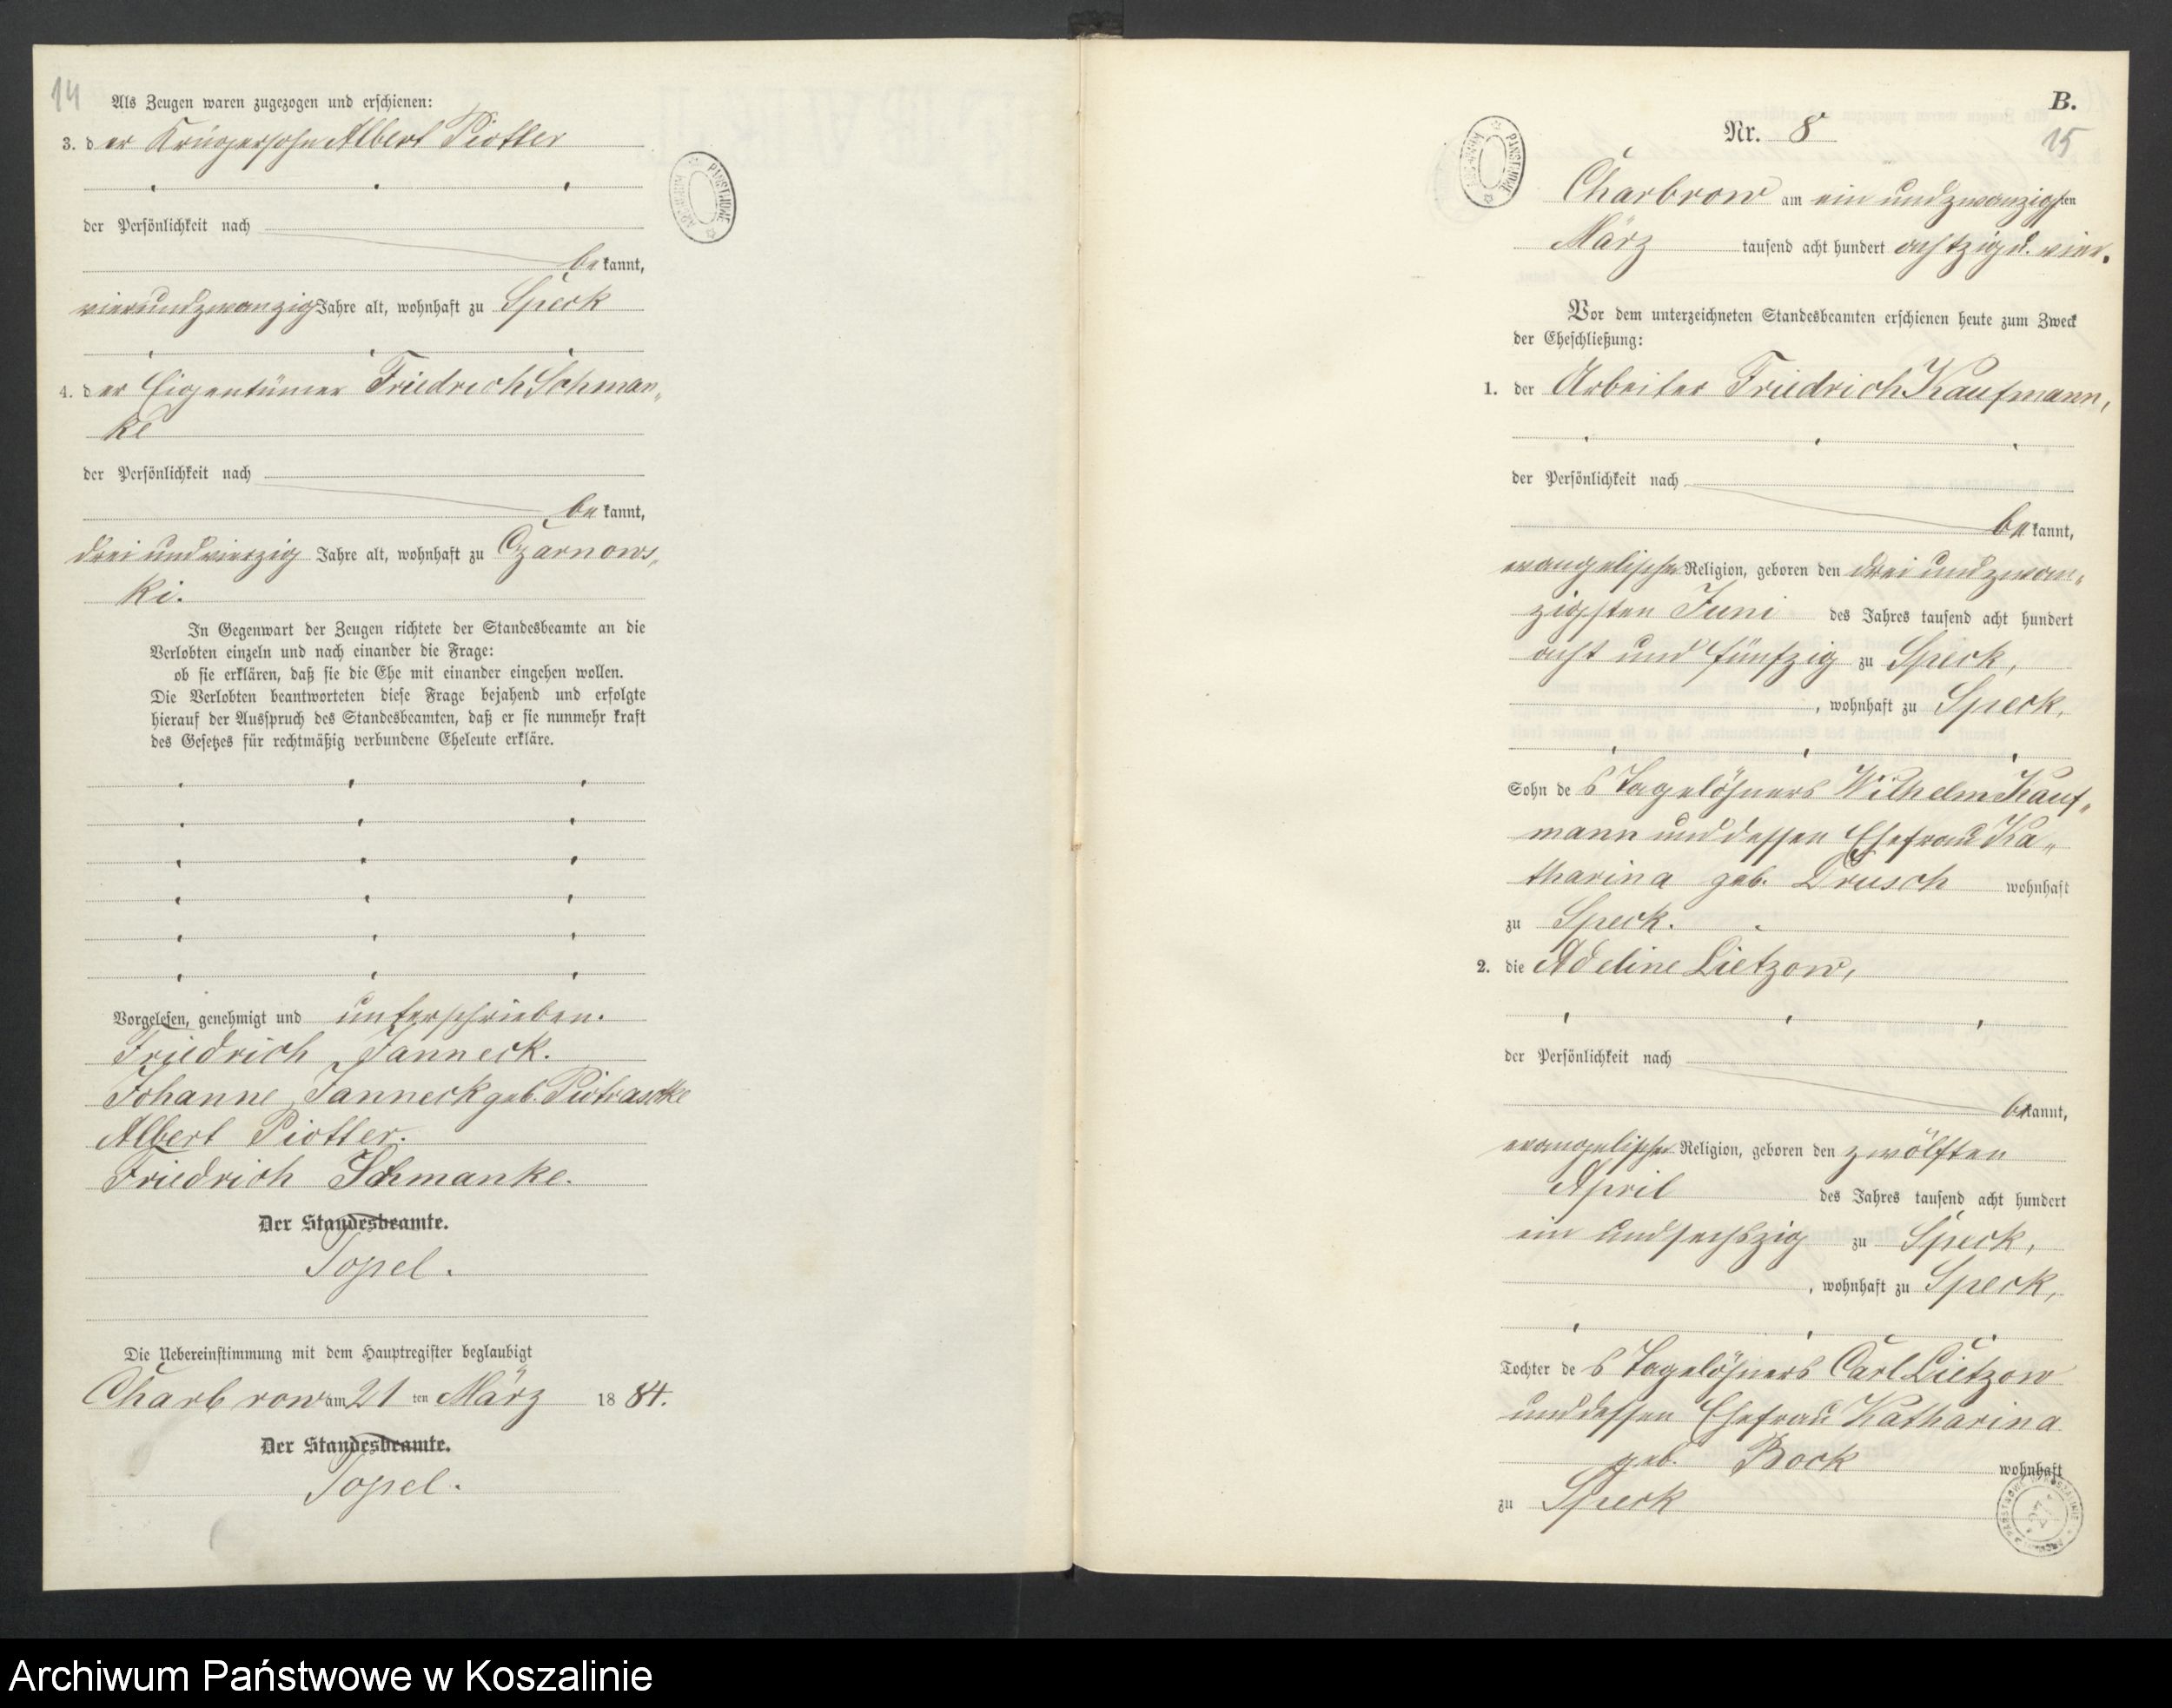 14
Als Zeugen waren zugezogen und erschienen:
3. der Krügersohn Albert Piotter
der Persönlichkeit nach
bekannt,
vierundzwanzig Jahre alt, wohnhaft zu Speck
4. der Eigentümer Friedrich Schman„
ke
der Persönlichkeit nach
bekannt,
drei und vierzig Jahre alt, wohnhaft zu Czarnows„
ki.
In Gegenwart der Zeugen richtete der Standesbeamte an die
Verlobten einzeln und nach einander die Frage:
ob sie erklären, daß sie die Ehe mit einander eingehen wollen.
Die Verlobten beantworteten diese Frage bejahend und erfolgte
hierauf der Ausspruch des Standesbeamten, daß er sie nunmehr kraft
des Gesetzes für rechtmäßig verbundene Eheleute erkläre.
Vorgelesen, genehmigt und unterschrieben.
Friedrich Janneck.
Johanne Janneck geb. Piotraschke
Albert Piotter.
Friedrich Schmanke.
Der Standesbeamte.
Topel.
Die Uebereinstimmung mit dem Hauptregister beglaubigt
Charbrow am 21 ten März 1884.
Der Standesbeamte.
Topel.
ARCHIWUM PAŃSTWOWE
B.
Nr. 8
15
ARCHIWUM PAŃSTWOWE
Charbrow am ein und zwanzigsten
März tausend acht hundert achtzig u. vier.
Vor dem unterzeichneten Standesbeamten erschienen heute zum Zweck
der Eheschließung:
1. der Arbeiter Friedrich Kaufmann,
der Persönlichkeit nach
bekannt,
evangelischer Religion, geboren den drei und zwan„
zigsten Juni des Jahres tausend acht hundert
acht und fünfzig zu Speck,
, wohnhaft zu Speck,
Sohn des Tagelöhners Wilhelm Kauf„
mann und dessen Ehefrau Ka„
tharina geb. Drusch wohnhaft
zu Speck.
2. die Adeline Lietzow,
der Persönlichkeit nach
bekannt,
evangelischer Religion, geboren den zwölften
April des Jahres tausend acht hundert
ein und sechszig zu Speck,
, wohnhaft zu Speck,
Tochter des Tagelöhners Carl Lietzow
und dessen Ehefrau Katharina
geb. Bock wohnhaft
zu Speck
Archiwum Państwowe w Koszalinie